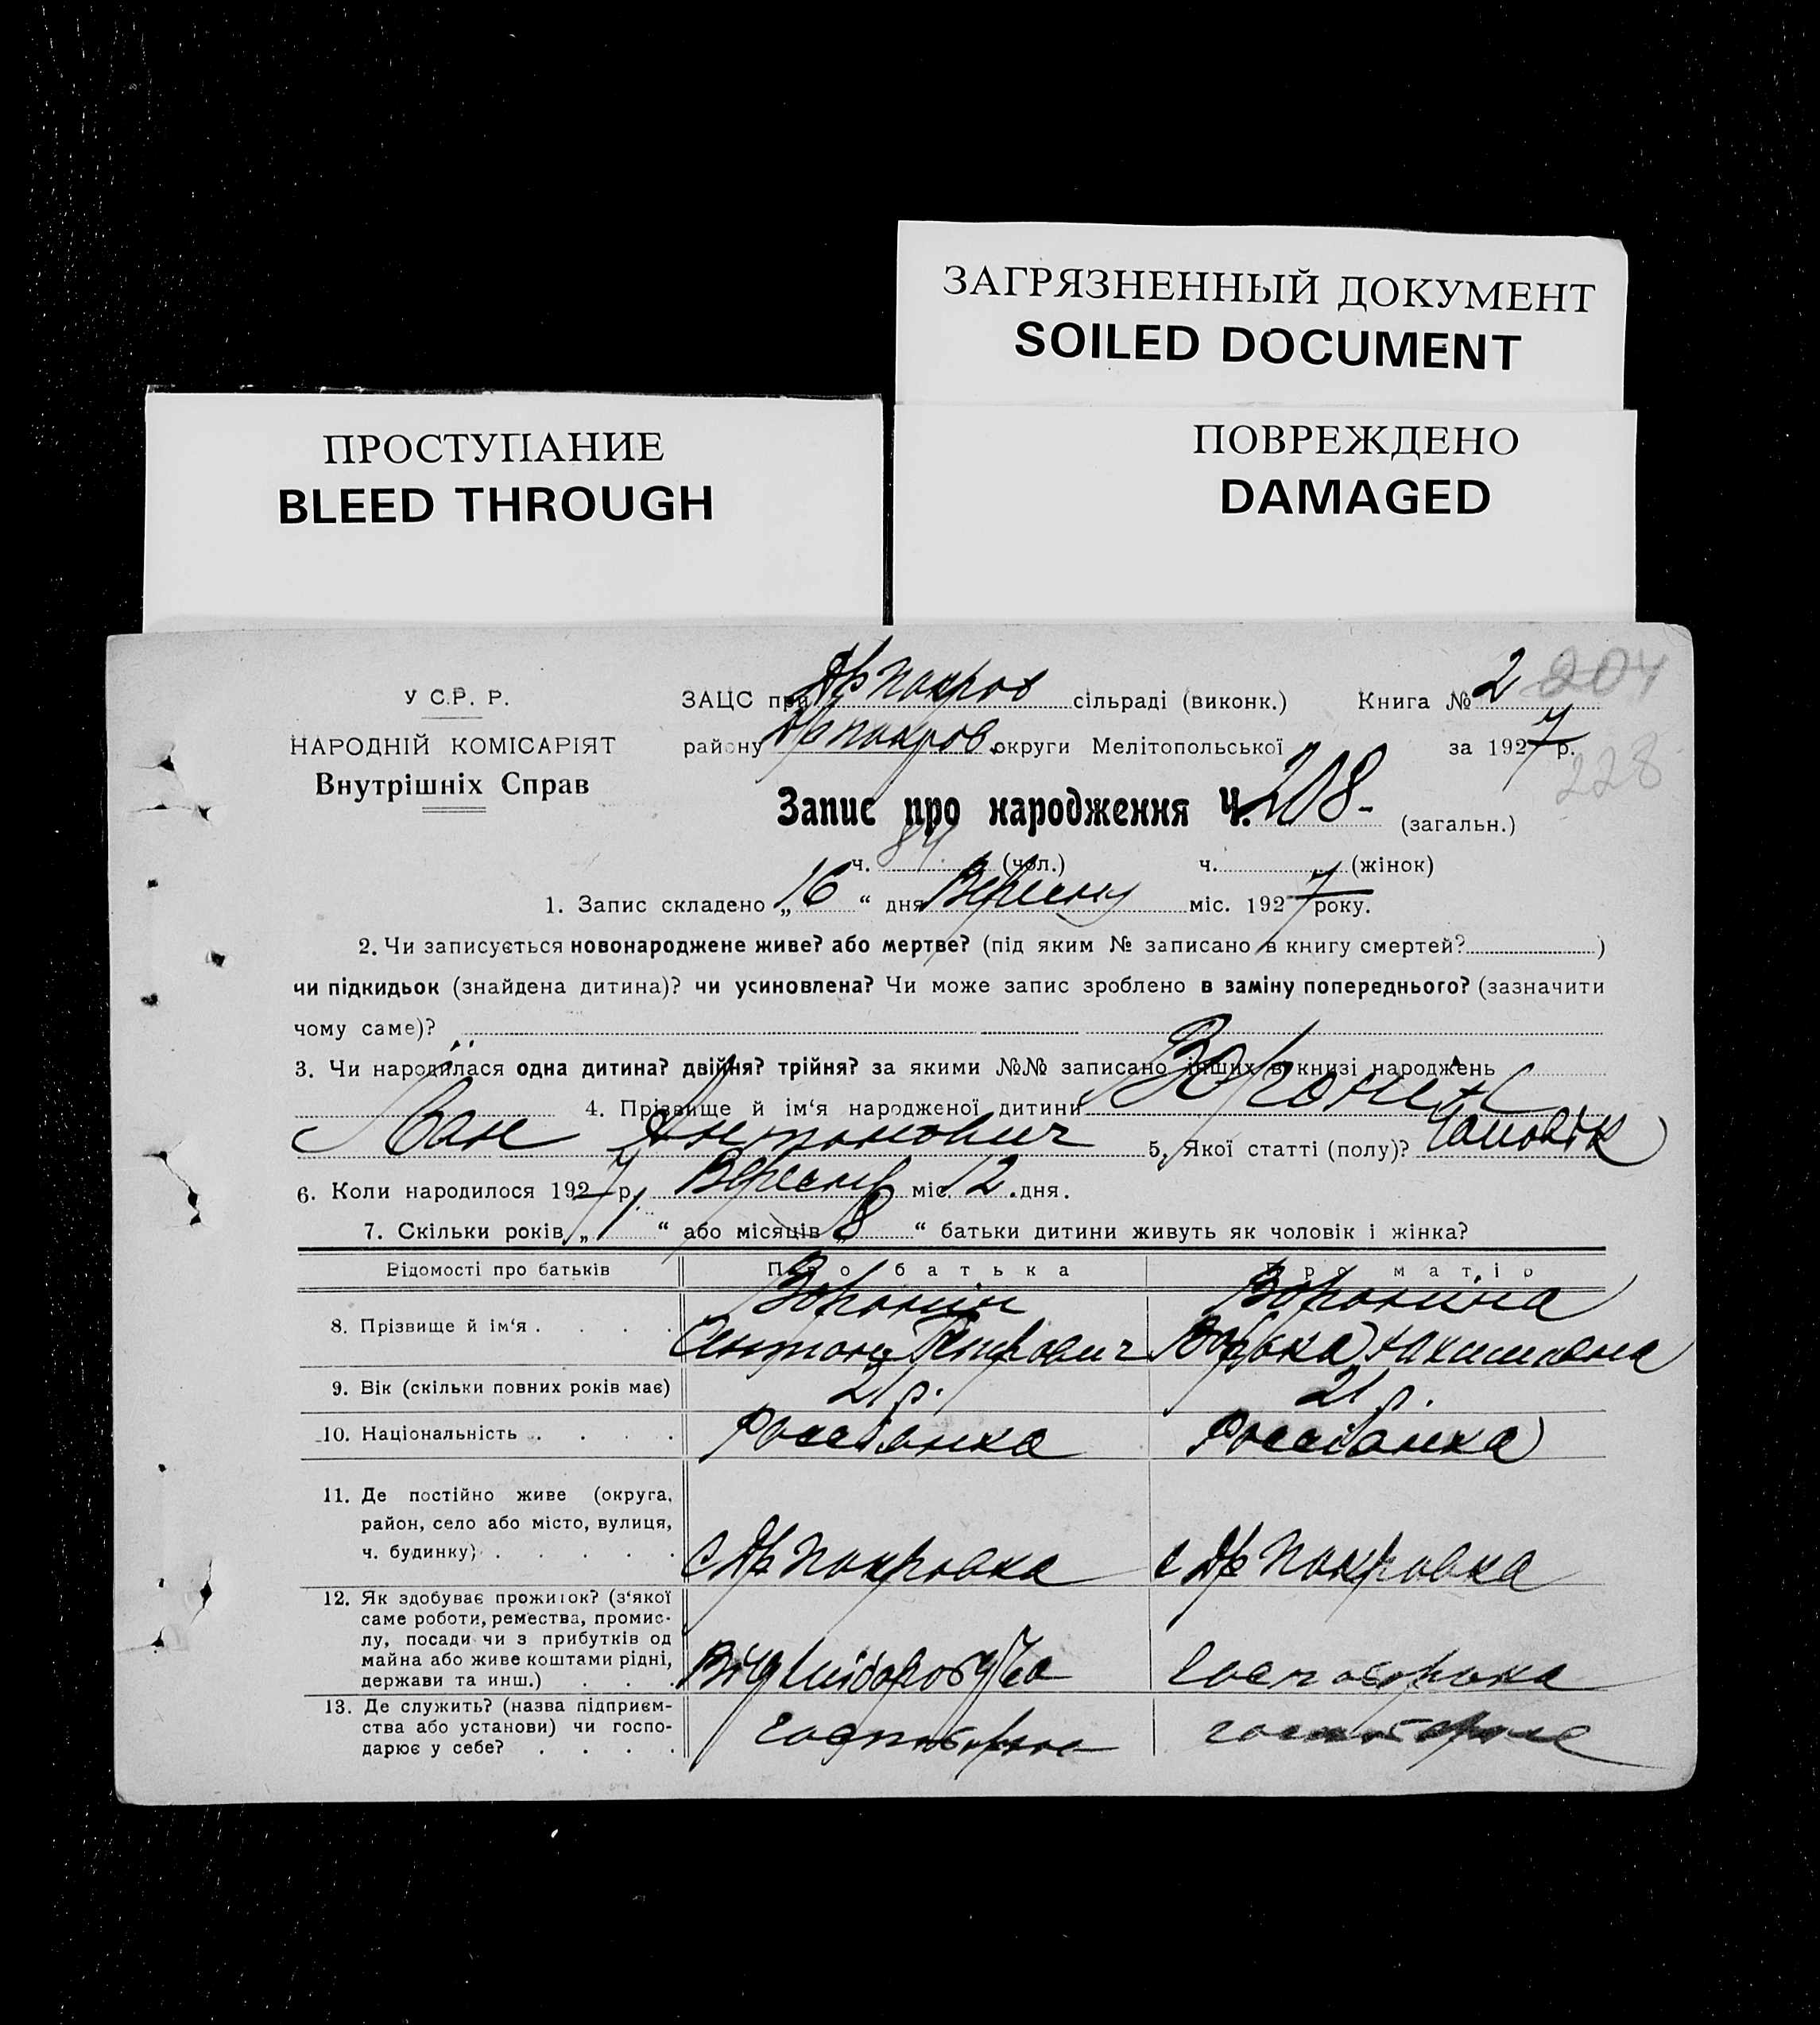 ЗАГРЯЗНЕННЫЙ ДОКУМЕНТ
SOILED DOCUMENT
ПРОСТУПАНИЕ
BLEED THROUGH
ПОВРЕЖДЕНО
DAMAGED
У С.Р. Р.
НАРОДНІЙ КОМІСАРІЯТ
Внутрішніх Справ
ЗАЦС при Др Покров сільраді (виконк.) Книга № 2 204
району Др Покров округи Мелітопольської за 1927 р.
228
Запис про народження Ч. 208 - (загальн.)
ч. 84 (чол.) ч. (жінок)
1. Запис складено „ 16 “ дня Вересня міс. 1927 року.
2. Чи записується новонароджене живе? або мертве? (під яким № записано в книгу смертей? )
чи підкидьок (знайдена дитина)? чи усиновлена? Чи може запис зроблено в заміну попереднього? (зазначити
чому саме)?
3. Чи народилася одна дитина? двійня? трійня? за якими №№ записано інших в книзі народжень
4. Прізвище й ім‘я народженої дитини Воронин
Іван Антонович 5. Якої статті (полу)? Чоловік
6. Коли народилося 1927 р. Вересня міс. 12 дня.
7. Скільки років „ 1 “ або місяців „ 8 “ батьки дитини живуть як чоловік і жінка?
Відомості про батьків Про батька Про матір
8. Прізвище й ім‘я . . . . . Воронин Воронина
Антон Петрович
9. Вік (скільки повних років має) 21 р. 21 р.
10. Національність . . . . Россіанка Россіанка
11. Де постійно живе (округа,
район, село або місто, вулиця,
ч. будинку) . . . . . с Др Покровка с Др Покровка
12. Як здобуває прожиток? (з‘якої
саме роботи, ремества, промис-
лу, посади чи з прибутків од
майна або живе коштами рідні,
держави та инш.) . . .
13. Де служить? (назва підприєм-
ства або установи) чи госпо-
дарює у себе? . . . .